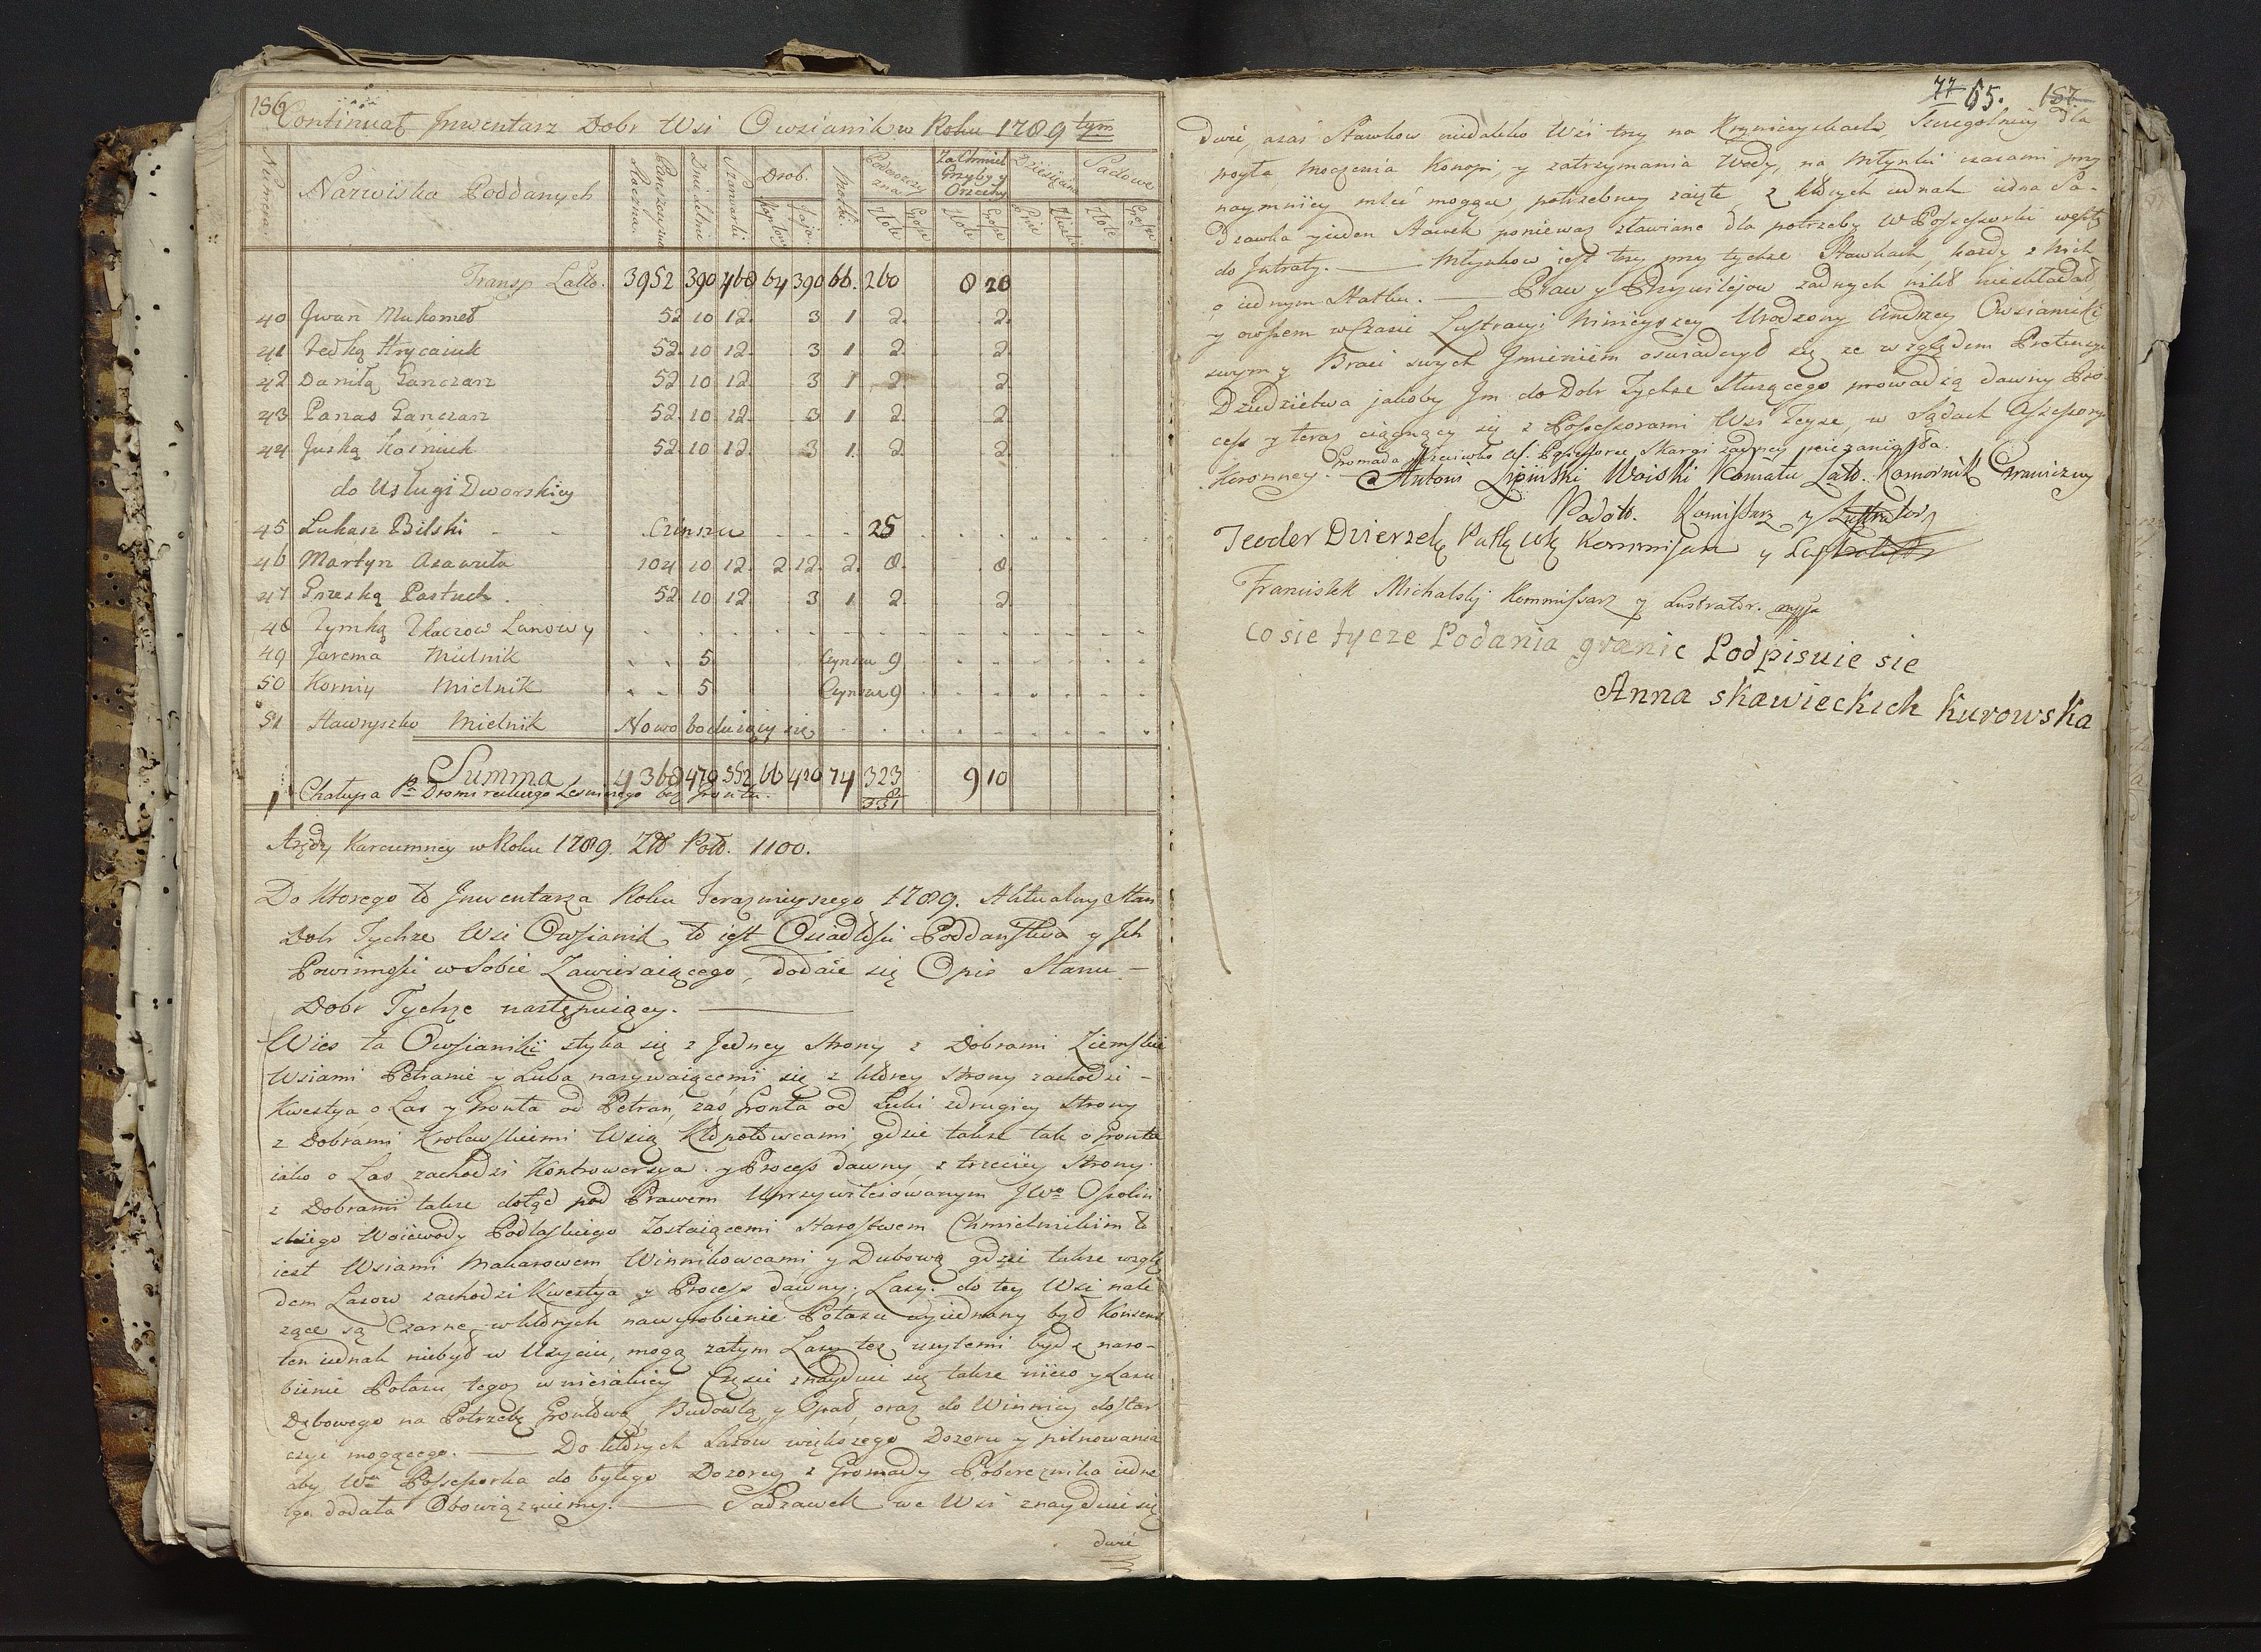 156
Continuat Jnwentarz Dobr Wsi Owsianik w Roku 1789 tym
Numera
Nazwiska Poddanych
Panszczyzna Roczna
Dni Letni
Szarwarki
Drob.
Kapłony
Jaja
Motki
Podoroszczyzna
Złote
Grosze
Za Chmiel Grzyby y Orzechy
Złote
Grosze
Dziesięcina
Złote
Grosze
Transp Latto. 3952 390 468 64 390 66. 260 8 20
40 Jwan Mukomeł 52 10 12. 3 1 2. 2.
41 Fedką Hrycaiuk 52. 10 12. 3 1 2. 2.
42 Daniłą Ganczarz 52 10 12. 3 1 2. 2.
43 Panas Ganczarz 52. 10 12. 3 1 2. 2.
44 Juską 52. 10 12. 3 1. 2. 2.
do Usługi Dworskiey
45 Łukasz Bilski Czinszu 25
46 Martyn Asawuła 104 10 12. 2. 12. 2. 8. 8.
47 Grzeską Pastuch. 52. 10 12. 3 1 2. 2.
48 Tymką Tkaczow Lanowy
49 Jarema Mielnik 5. Czynszu 9
50 Korniy Mielnik 5 Czynszu 9
51 Hawryszko Mielnik Nowo boduiący się
Summa 4368 479 552 66 420 74 323 9 10
1 Chałupa Pa Leśniczego bez Gruntu.
Arędy Karczemney w Roku 1789. Złł Poł. 1100.
Do Którego to Jnwentarza Roku Terazнieyszego 1789. Aktualny Stan
Dobr Tychze Wsi Owsianik, to iest Osiadłości Poddaństwa y Jch
Powinności w Sobie Zawieraiącego, dodaie się Opis Stanu -
Dobr Tychże następuiący.
Wies ta Owsianiki styka się z Jedney Strony z Dobrami Ziemskie
Wsiami Petranie y Luba nazywaiącemi się z którey strony zachodzi -
Kwestya o Las y Gronta od Petran, zaś Gronta od Luki zdrugiey Strony
z Dobrami Krolewskiemi Wsią Kłopotowcami, gdzie takze tak o Gronta
iako o Las zachodzi Kontrowersya y Process dawny, z trzeciey Strony
z Dobrami takze dotąd pod Prawem Uprzywileiowanym JWo Ossoliń
skiego Woiewody Podlaskiego Zostaiącemi Starostwem Chmielnikim to
iest Wsiami Makarowem Winnikowcami, y Dubową gdzie takze wzglę
dem Lasow zachodzi Kwestya y Process dawny; Lasy do tey Wsi nale
zące są Czarne, w których nawyrobienie Potazu wyiednany był Konsens
ten iednak niebył w Uzyciu, mogą zatym Lasy tez uzytemi bydz naro-
bienie Potazu, tegoz w niejakiey Części znayduie się takze nieco y Lasu
Dębowego na Potrzebę Grontową, Budowlą, y Opał, oraz do Winnicy dostar
czyć mogącego. Do których Lasow większego Dozoru y pilnowania
aby Wa Possessorka do byłego Dozorcy z Gromady Pobereznika iedne
go dodała Obowiązuiemy. Sadzawek we Wsi znayduie się
dwie
77 65. 157
dwie, a zaś Stawkow niedaleko Wsi trzy na Krzyniczyskach, Szczegolniey dla
Moczenia Konopi, y zatrzymania Wody, na Młynki czasami przy
naymniey mleć mogące potrzebney zaięte, z których iednak iedna Sa-
dzawka y ieden Stawek poniewaz stawiane dla potrzeby W Possessorki weszły
do Jntraty. Młynkow iest trzy przy tychze Stawkach, kazdy z nich
o iednym Statku. Praw y Przywilejow zadnych nikt nieskładał
y owszem w Czasie Lustracyi Ninieyszey Urodzony Andrzey Owsianicki
swym y Braci swych Jmieniem oswiadczył się ze względem Pretensyi
Dziedzictwa jakoby Jm do Dobr Tychze Słuzącego prowadzą dawny Pro
cess y teraz ciągnący się z Possessorami Wsi Teyze, w Sądach Assessory
Koronney. Gromada przeciwko Possessorce Skargi zadney niezaniosła.
Antoni Lipiński Woiski Powiatu Lato. Komornik Graniczny
Podol. Komissarz y Lustrator
Teodor Dzierzek Putk Kommisarz y Lustrator
Franciszek Michalsky Kommissarz y Lustrator. mpp
co sie tycze Podania granic Podpisuie sie
Anna skawieckich Kurowska